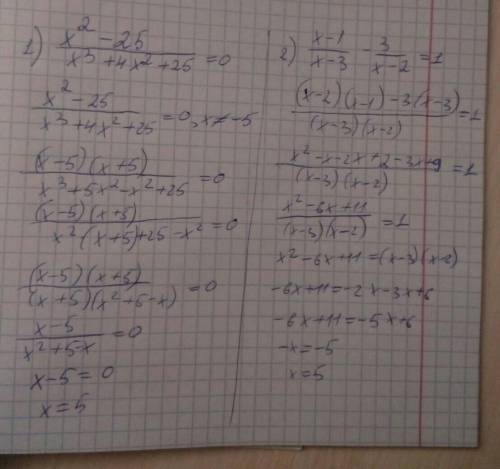 1) (x² - 25)/(x³ + 4x² + 25) = 0
(x² - 25)/(x³ + 4x² + 25) = 0, x ≠ -5
((x-5)(x+5))/(x³ + 5x² - x² + 25) = 0
((x-5)(x+5))/(x²(x+5)+25-x²) = 0
((x-5)(x+5))/((x+5)(x²+5-x)) = 0
(x-5)/(x²+5-x) = 0
x-5 = 0
x = 5
2) (x-1)/(x-3) - 3/(x-2) = 1
((x-2)(x-1)-3(x-3))/((x-3)(x-2)) = 1
(x²-x-2x+2-3x+9)/((x-3)(x-2)) = 1
(x²-6x+11)/((x-3)(x-2)) = 1
x²-6x+11=(x-3)(x-2)
-6x+11=-2x-3x+6
-6x+11=-5x+6
-x=-5
x=5